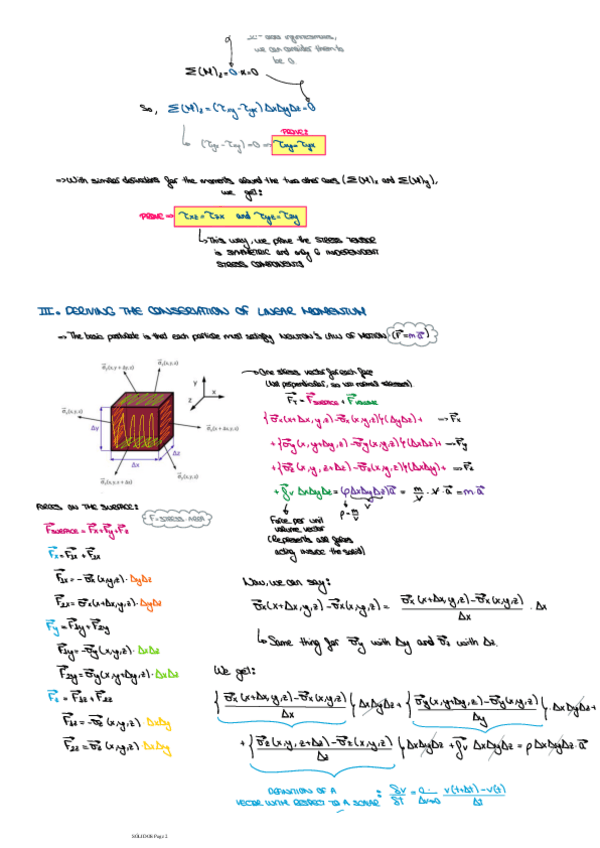 areas infinitesimal,
we can consider them to
be 0.
Σ(M)z=0·α=0
So, Σ(M)z=(τxy-τyx)ΔxΔyΔz=0
PROVE:
(τyx-τxy)=0 => τxy=τyx
=>With similar derivations for the moments around the two other axes (Σ(M)x and Σ(M)y),
we get:
PROVE => τxz=τzx and τyz=τzy
This way, we prove the STRESS TENSOR
is SYMMETRIC and only 6 INDEPENDENT
STRESS COMPONENTS
III. DERIVING THE CONSERVATION OF LINEAR MOMENTUM
=> The basic postulate is that each particle must satisfy NEWTON'S LAW OF MOTION (F=m·a)
One stress vector for each face
F = F SURFACE + F VOLUME
{σx(x+Δx,y,z)-σx(x,y,z)}(ΔyΔz)+ => Fx
{σy(x,y+Δy,z)-σy(x,y,z)}(ΔxΔz)+ => Fy
+{σz(x,y,z+Δz)-σz(x,y,z)}(ΔxΔy)+ => Fz
+fv ΔxΔyΔz=(ρΔxΔyΔz)a = m/V · V · a = m·a
y
x
z
Δy
Δx
Δz
Force per unit
volume vector
(Represents all forces
acting inside the solid)
ρ=m/V
FORCES ON THE SURFACE:
F=STRESS·AREA
F SURFACE = Fx+Fy+Fz
Fx=F1x+F2x
F1x=-σx(x,y,z)·ΔyΔz
F2x=σx(x+Δx,y,z)·ΔyΔz
Fy=F1y+F2y
F1y=-σy(x,y,z)·ΔxΔz
F2y=σy(x,y+Δy,z)·ΔxΔz
Fz=F1z+F2z
F1z=-σz(x,y,z)·ΔxΔy
F2z=σz(x,y,z)·ΔxΔy
Now, we can say:
σx(x+Δx,y,z)-σx(x,y,z)= (σx(x+Δx,y,z)-σx(x,y,z))/Δx · Δx
Same thing for σy with Δy and σz with Δz.
We get:
{(σx(x+Δx,y,z)-σx(x,y,z))/Δx}ΔxΔyΔz+{(σy(x,y+Δy,z)-σy(x,y,z))/Δy}·ΔxΔyΔz+
+{(σz(x,y,z+Δz)-σz(x,y,z))/Δz}ΔxΔyΔz+fv ΔxΔyΔz=ρΔxΔyΔz·a
DEFINITION OF A
VECTOR WITH RESPECT TO A SCALAR
: δv/δt = (v(t+Δt)-v(t))/Δt
SÓLIDOS Page 2